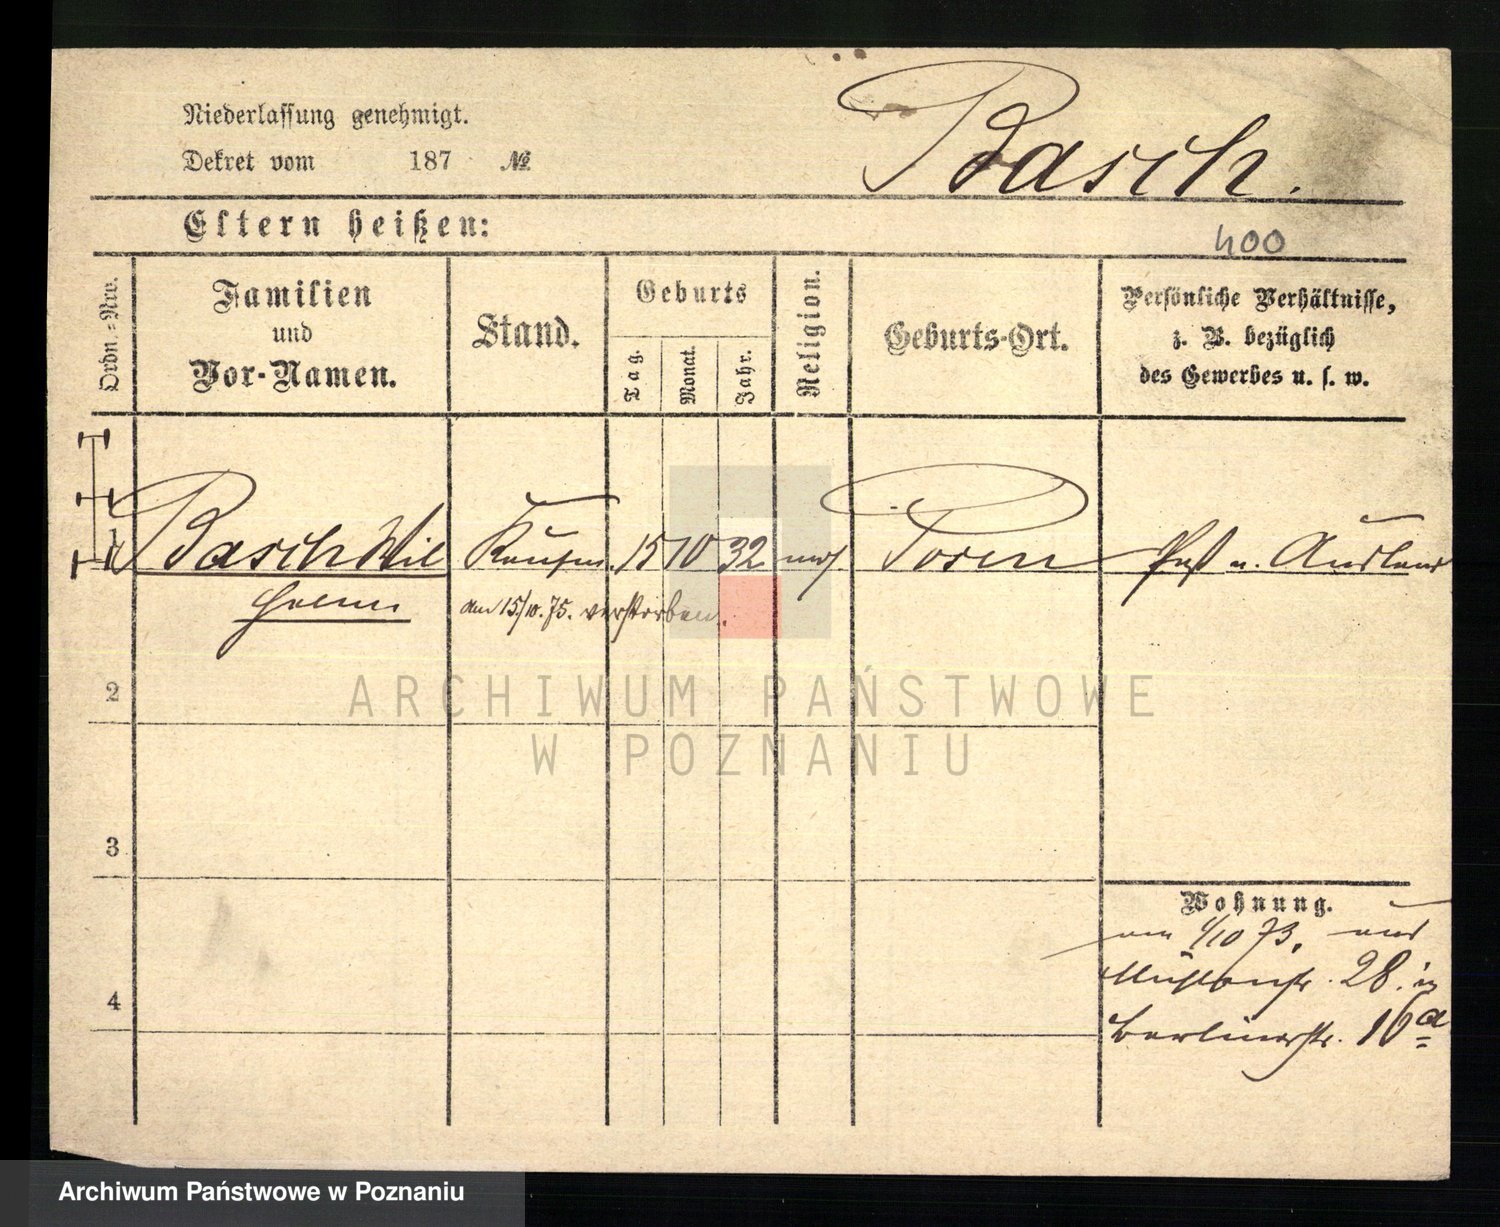 Niederlassung genehmigt.
Dekret vom 187 №
Basch.
Eltern heißen:
400
Ordn.=Nro.
Familien
und
Vor-Namen.
Stand.
Geburts
Tag.
Monat.
Jahr.
Religion.
Geburts-Ort.
Persönliche Verhältnisse,
z. B. bezüglich
des Gewerbes u. s. w.
1 Basch Wil Kaufm. 15 10 32 mos Posen Paß n. Ausland
helm am 15/10. 75. verstorben.
2
ARCHIWUM PAŃSTWOWE
W POZNANIU
3
Wohnung.
1/10 73. aus
Mühlenstr. 28. in
4
Berlinerstr. 16a
Archiwum Państwowe w Poznaniu